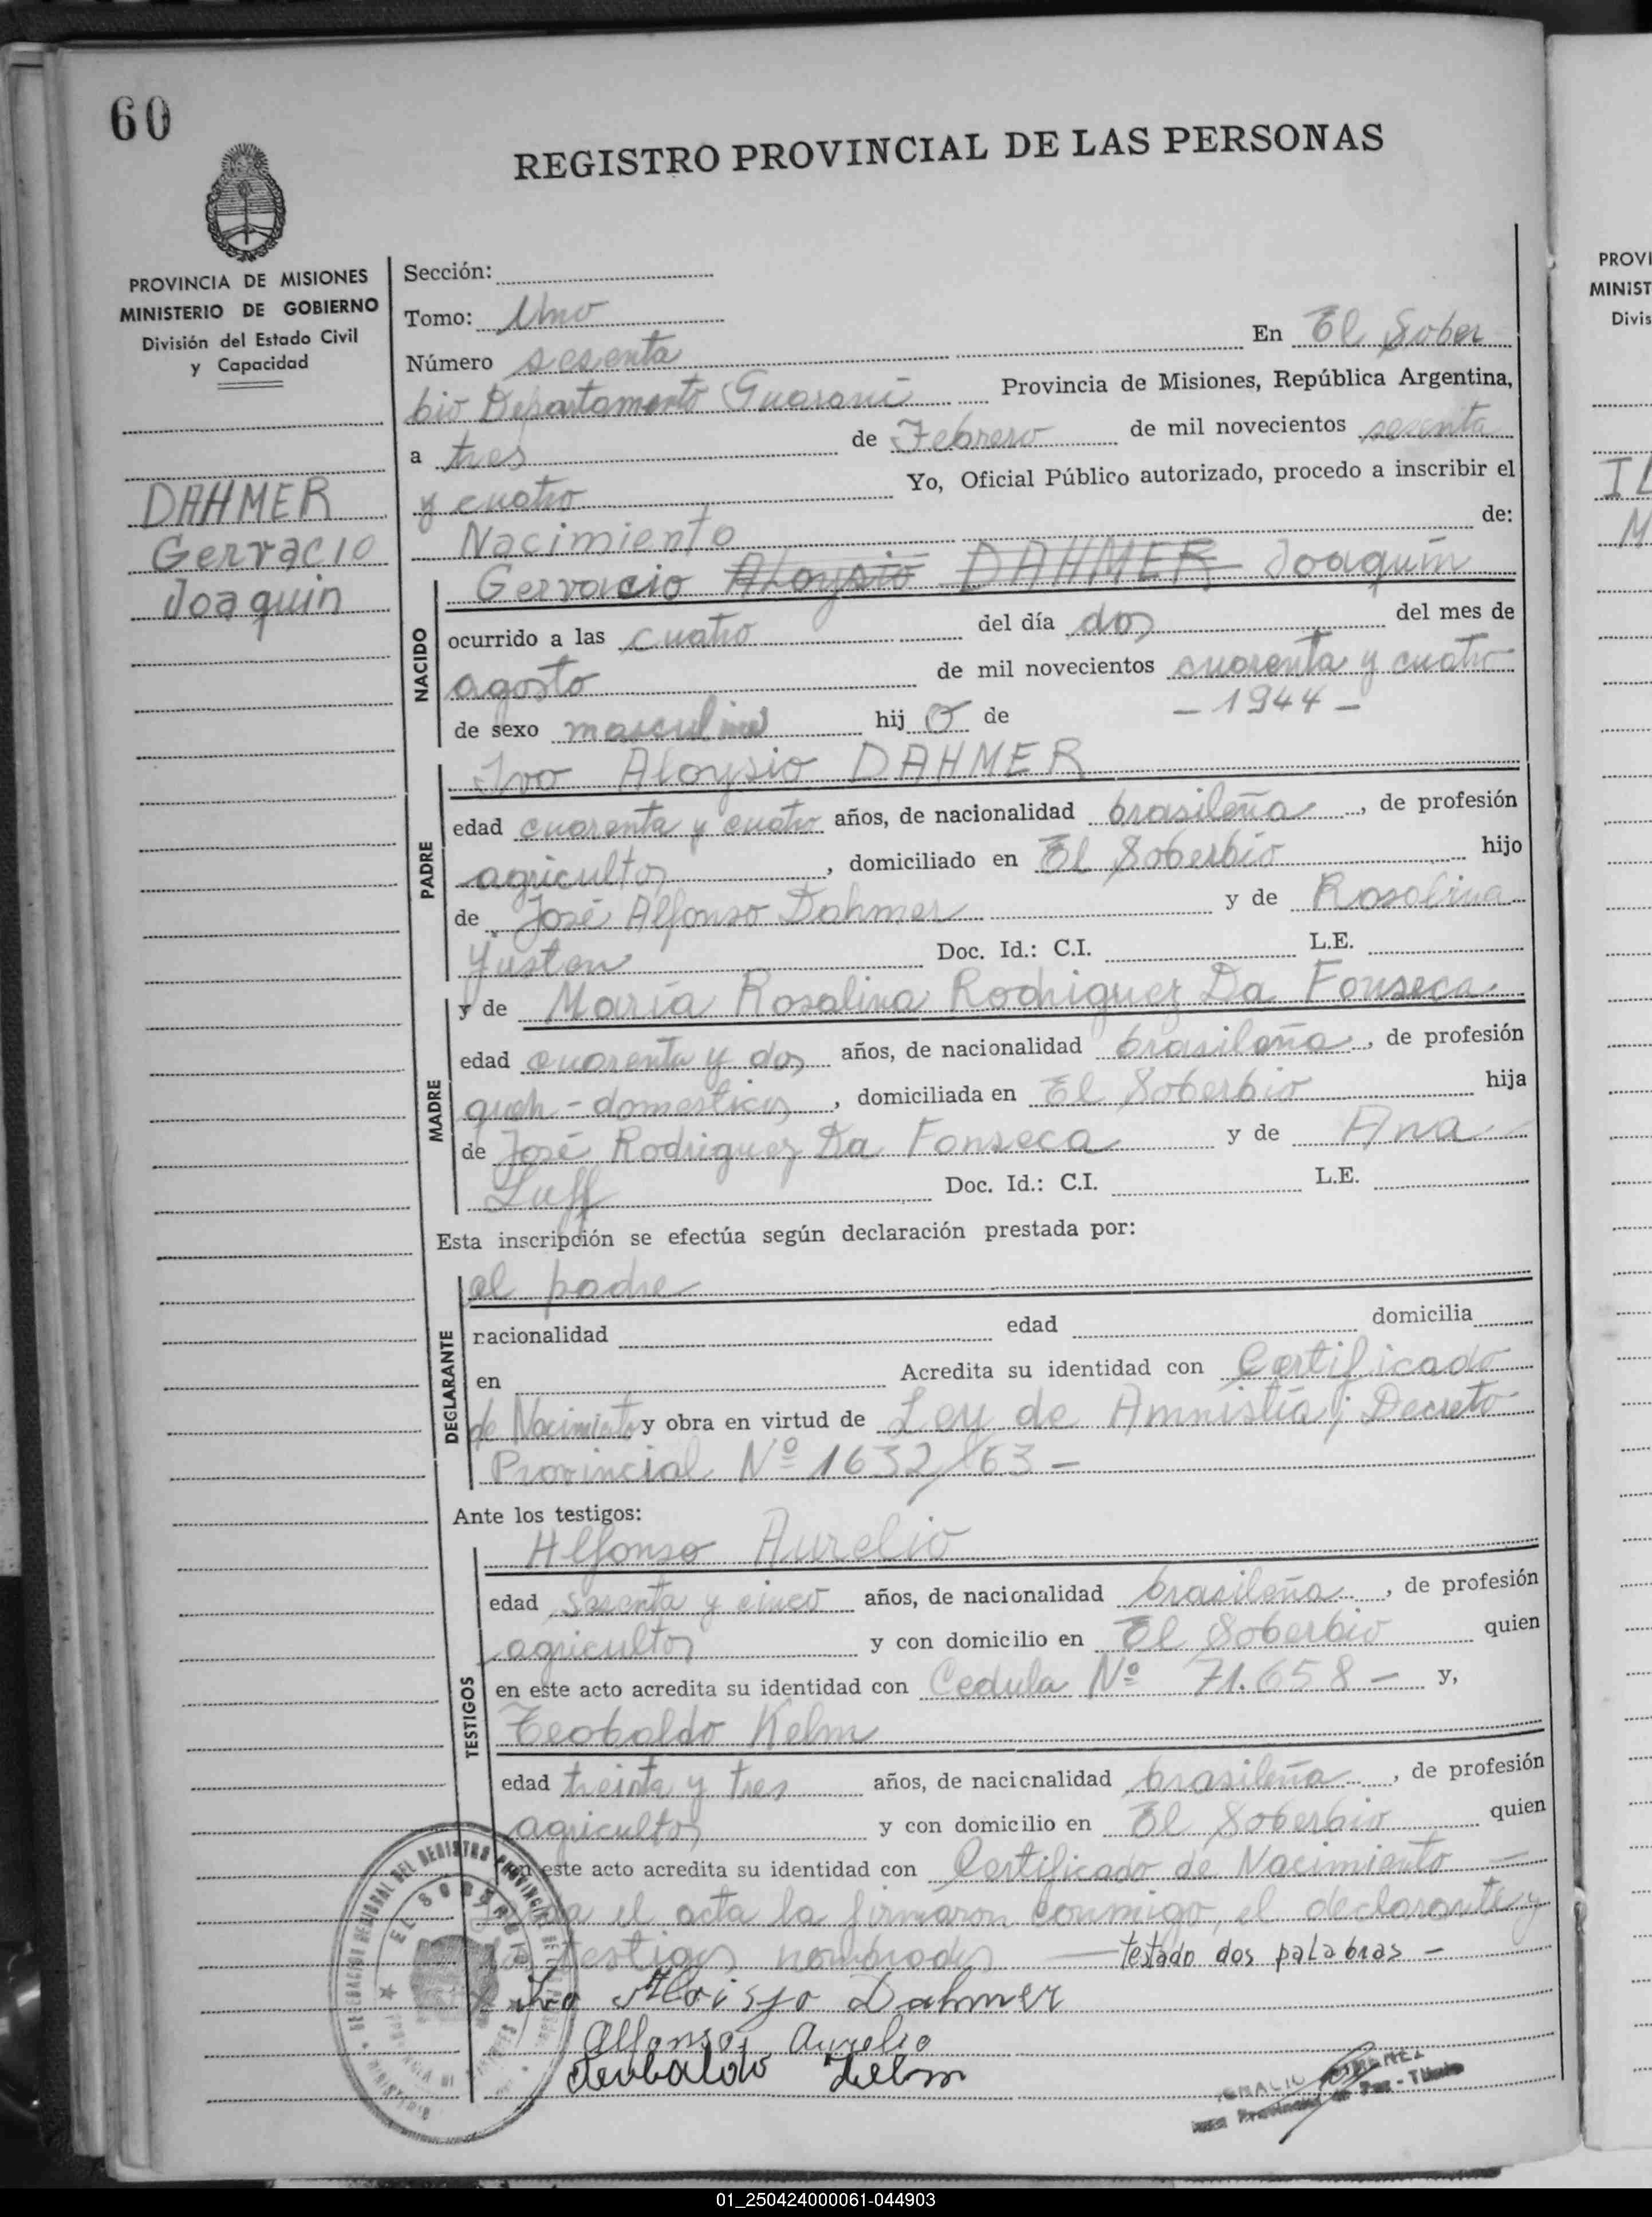 60
REGISTRO PROVINCIAL DE LAS PERSONAS
PROVINCIA DE MISIONES
MINISTERIO DE GOBIERNO
División del Estado Civil
y Capacidad
DAHMER
Gervacio
Joaquin
Sección:
Tomo: Uno
Número sesenta En El Sober
bio Departamento Guaraní Provincia de Misiones, República Argentina,
a tres de Febrero de mil novecientos sesenta
y cuatro Yo, Oficial Público autorizado, procedo a inscribir el
Nacimiento de:
Gervacio Aloysio DAHMER Joaquín
NACIDO
ocurrido a las cuatro del día dos del mes de
agosto de mil novecientos cuarenta y cuatro
de sexo masculino hijo de - 1944 -
PADRE
Ivo Aloysio DAHMER
edad cuarenta y cuatro años, de nacionalidad brasileña, de profesión
agricultor, domiciliado en El Soberbio hijo
de José Alfonso Dahmer y de Rosolina
Yusten Doc. Id.: C.I. L.E.
MADRE
y de María Rosalina Rodriguez Da Fonseca
edad cuarenta y dos años, de nacionalidad brasileña, de profesión
queh-domesticos, domiciliada en El Soberbio hija
de José Rodriguez Da Fonseca y de Ana
Luff Doc. Id.: C.I. L.E.
Esta inscripción se efectúa según declaración prestada por:
DECLARANTE
el padre
nacionalidad edad domicilia
en Acredita su identidad con Certificado
de Nacimiento y obra en virtud de Ley de Amnistía; Decreto
Provincial Nº 1632/63 -
Ante los testigos:
TESTIGOS
Alfonso Aurelio
edad sesenta y cinco años, de nacionalidad brasileña, de profesión
agricultor y con domicilio en El Soberbio quien
en este acto acredita su identidad con Cedula Nº 71.658 - y,
Teobaldo Kelm
edad treinta y tres años, de nacionalidad brasileña, de profesión
agricultor y con domicilio en El Soberbio quien
en este acto acredita su identidad con Certificado de Nacimiento -
el acta la firmaron conmigo, el declarante y
testigos nombrados testado dos palabras -
Ivo Aloisyo Dahmer
Alfonso Aurelio
Teubaldo Kelm
PROVI
MINIST
Divis
01_250424000061-044903